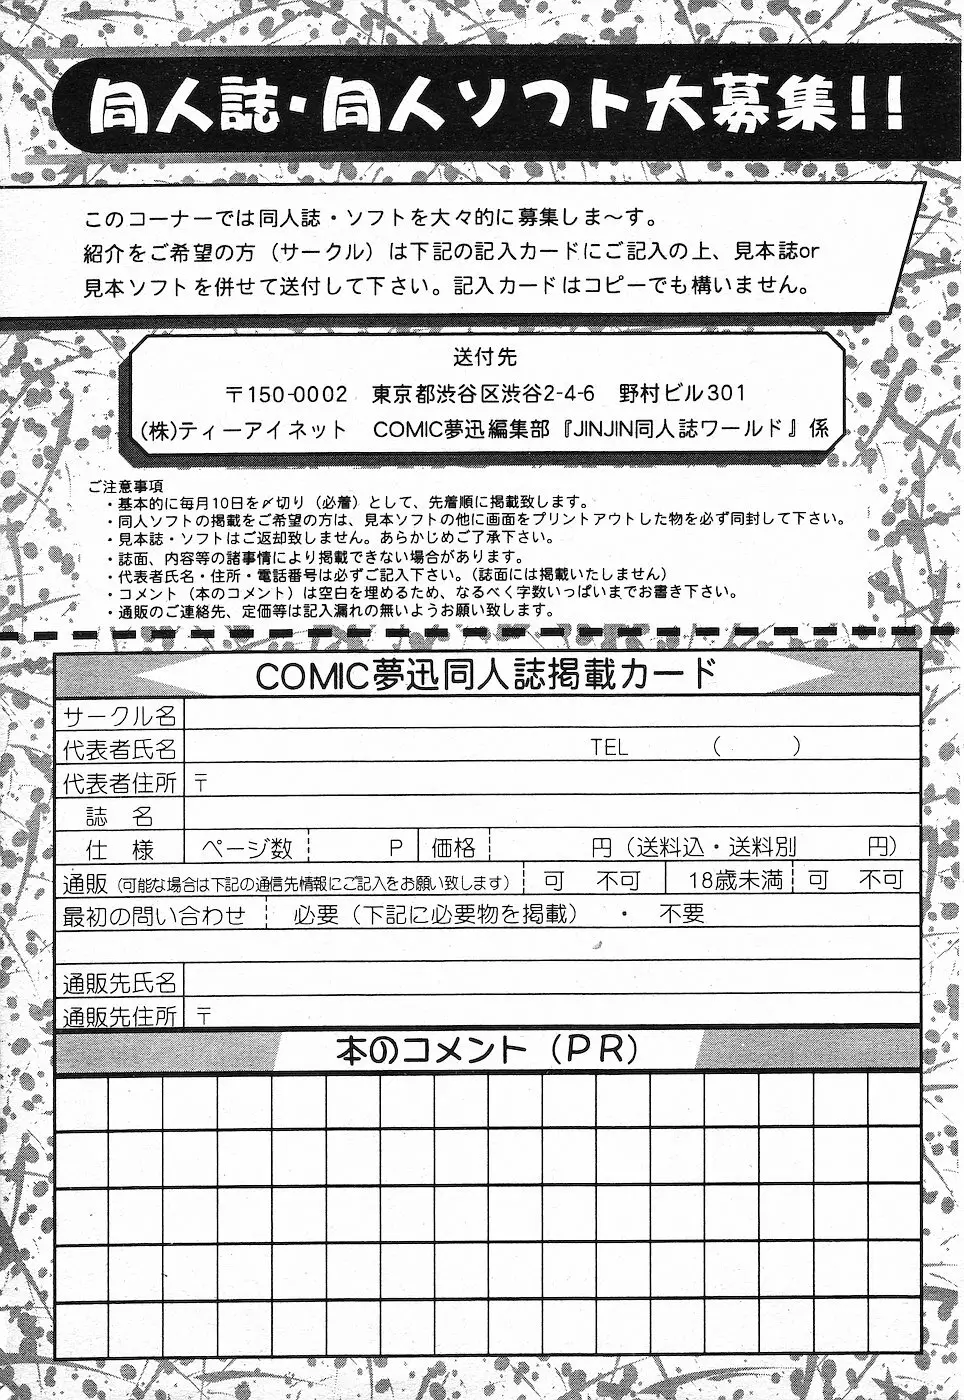 同人誌・同人ソフト大募集!!
このコーナーでは同人誌・ソフトを大々的に募集しま〜す。
紹介をご希望の方（サークル）は下記の記入カードにご記入の上、見本誌or
見本ソフトを併せて送付して下さい。記入カードはコピーでも構いません。
送付先
〒150-0002　東京都渋谷区渋谷2-4-6　野村ビル301
(株)ティーアイネット　COMIC夢迅編集部『JINJIN同人誌ワールド』係
ご注意事項
・基本的に毎月10日を〆切り（必着）として、先着順に掲載致します。
・同人ソフトの掲載をご希望の方は、見本ソフトの他に画面をプリントアウトした物を必ず同封して下さい。
・見本誌・ソフトはご返却致しません。あらかじめご了承下さい。
・誌面、内容等の諸事情により掲載できない場合があります。
・代表者氏名・住所・電話番号は必ずご記入下さい。（誌面には掲載いたしません）
・コメント（本のコメント）は空白を埋めるため、なるべく字数いっぱいまでお書き下さい。
・通販のご連絡先、定価等は記入漏れの無いようお願い致します。
COMIC夢迅同人誌掲載カード
サークル名
代表者氏名　TEL　（　　）
代表者住所　〒
誌　名
仕　様　ページ数　P　価格　円（送料込・送料別　円）
通販（可能な場合は下記の通信先情報にご記入をお願い致します）　可　不可　18歳未満　可　不可
最初の問い合わせ　必要（下記に必要物を掲載）　・　不要
通販先氏名
通販先住所　〒
本のコメント（PR）